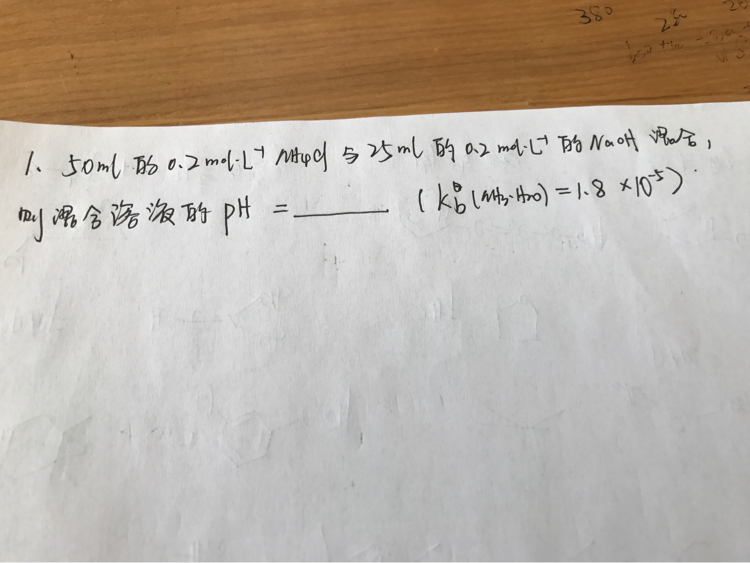 380
1、50ml 的 0.2 mol·L⁻¹ NH₄Cl 与 25ml 的 0.2 mol·L⁻¹ 的 NaOH 混合,
则混合溶液的 pH = ______ (K_b^θ(NH₃·H₂O) = 1.8 ×10⁻⁵)